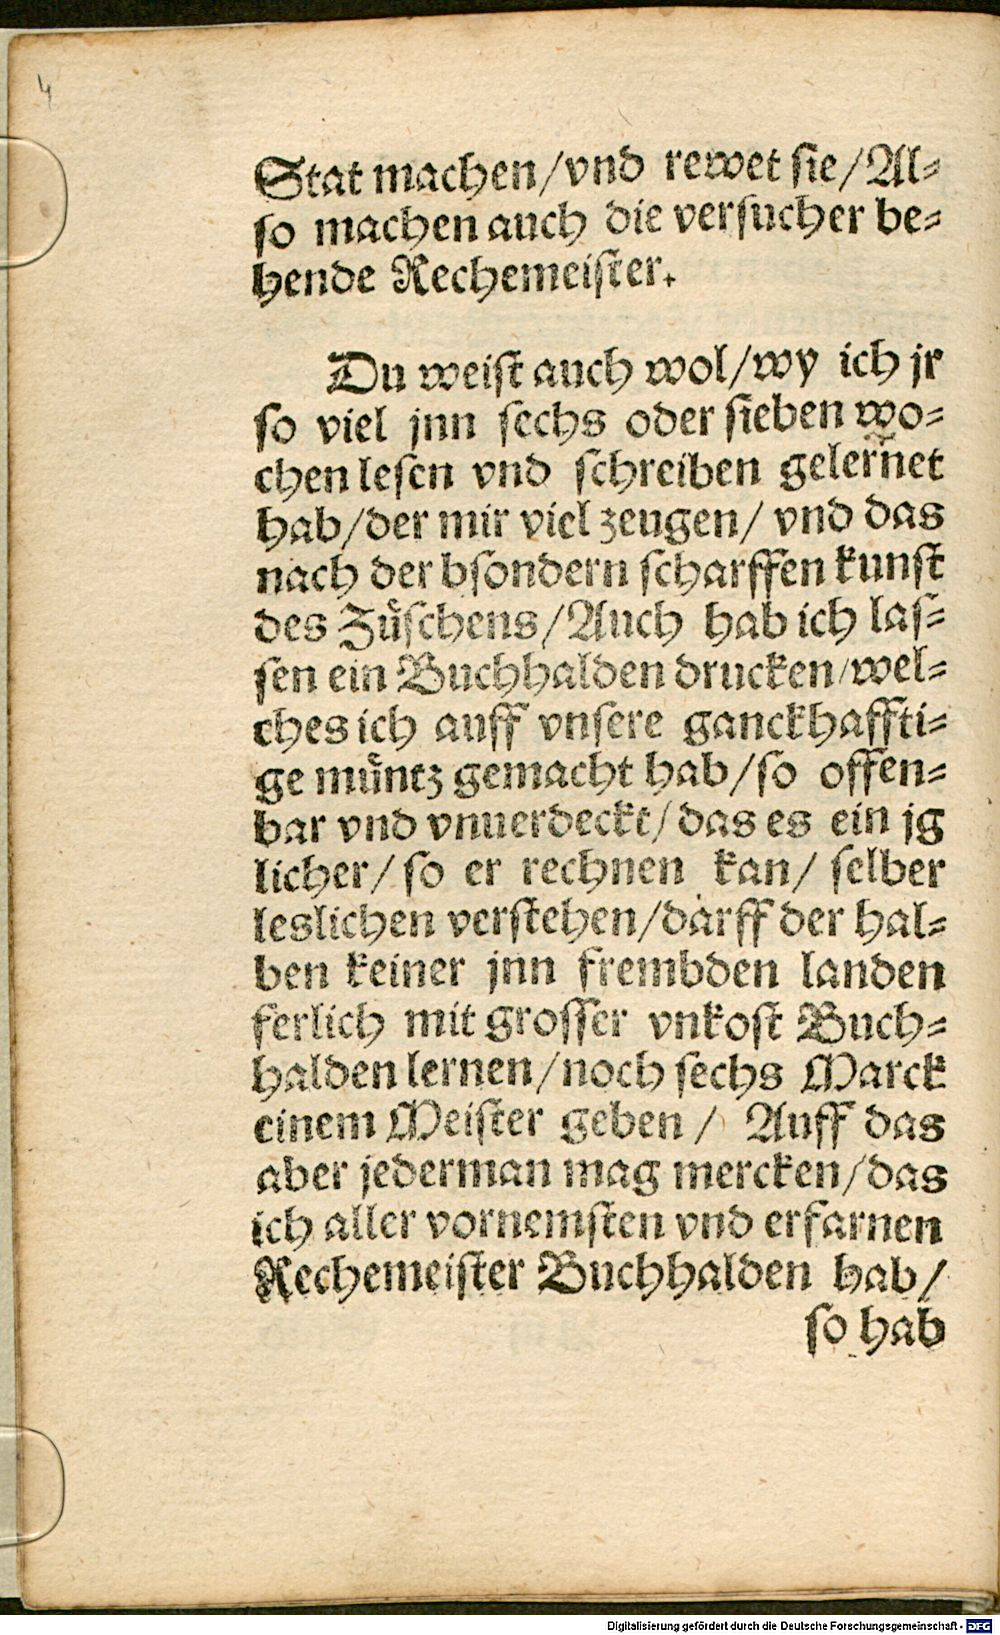 4
Stat machen/vnd rewet sie/Al⸗
so machen auch die versucher be⸗
hende Rechemeister.
Du weist auch wol/wy ich jr
so viel jnn sechs oder sieben wo⸗
chen lesen vnd schreiben gelernet
hab/der mir viel zeugen/ vnd das
nach der bsondern scharffen kunst
des Zůschens/Auch hab ich las⸗
sen ein Buchhalden drucken/wel⸗
ches ich auff vnsere ganckhaffti⸗
ge můntz gemacht hab/so offen⸗
bar vnd vnuerdeckt/das es ein jg
licher/ so er rechnen kan/ selber
leslichen verstehen/darff der hal⸗
ben keiner jnn frembden landen
ferlich mit grosser vnkost Buch⸗
halden lernen/noch sechs Marck
einem Meister geben / Auff das
aber jederman mag mercken/das
ich aller vornemsten vnd erfarnen
Rechemeister Buchhalden hab/
so hab
Digitalisierung gefördert durch die Deutsche Forschungsgemeinschaft - DFG